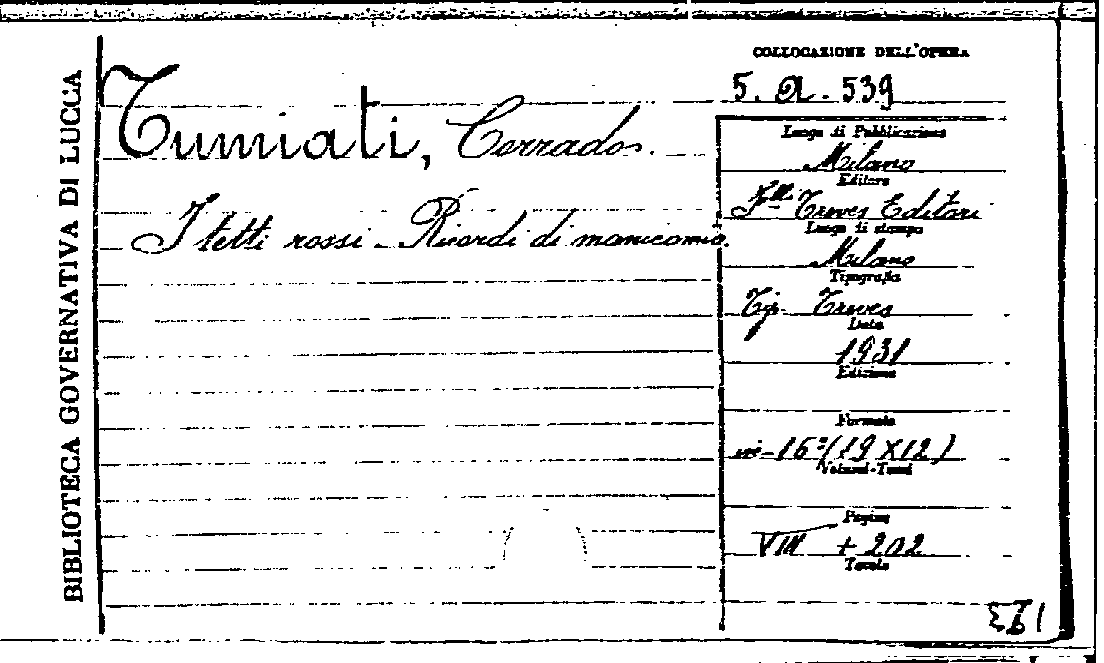 BIBLIOTECA GOVERNATIVA DI LUCCA
Tumiati, Corrado.
I tetti rossi - Ricordi di manicomio.
COLLOCAZIONE DELL'OPERA
5. A. 539
Luogo di Pubblicazione
Milano
Editore
F.lli Treves Editori
Luogo di stampa
Milano
Tipografia
Tip. Treves
Data
1931
Edizione
Formato
in-16º (19 X 12)
Volumi-Tomi
Pagine
VIII + 202
Tavole